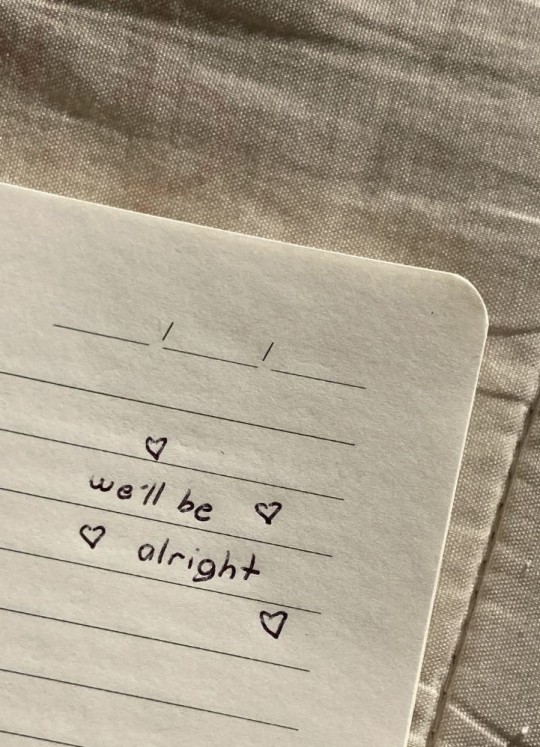 we'll be
alright